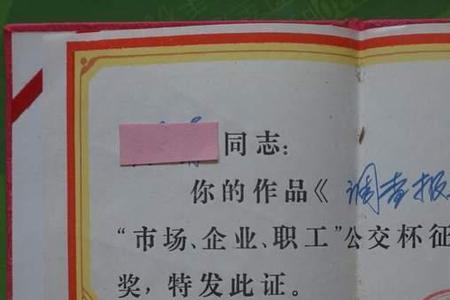 同志：
你的作品《调查报
“市场、企业、职工”公交杯征
奖，特发此证。